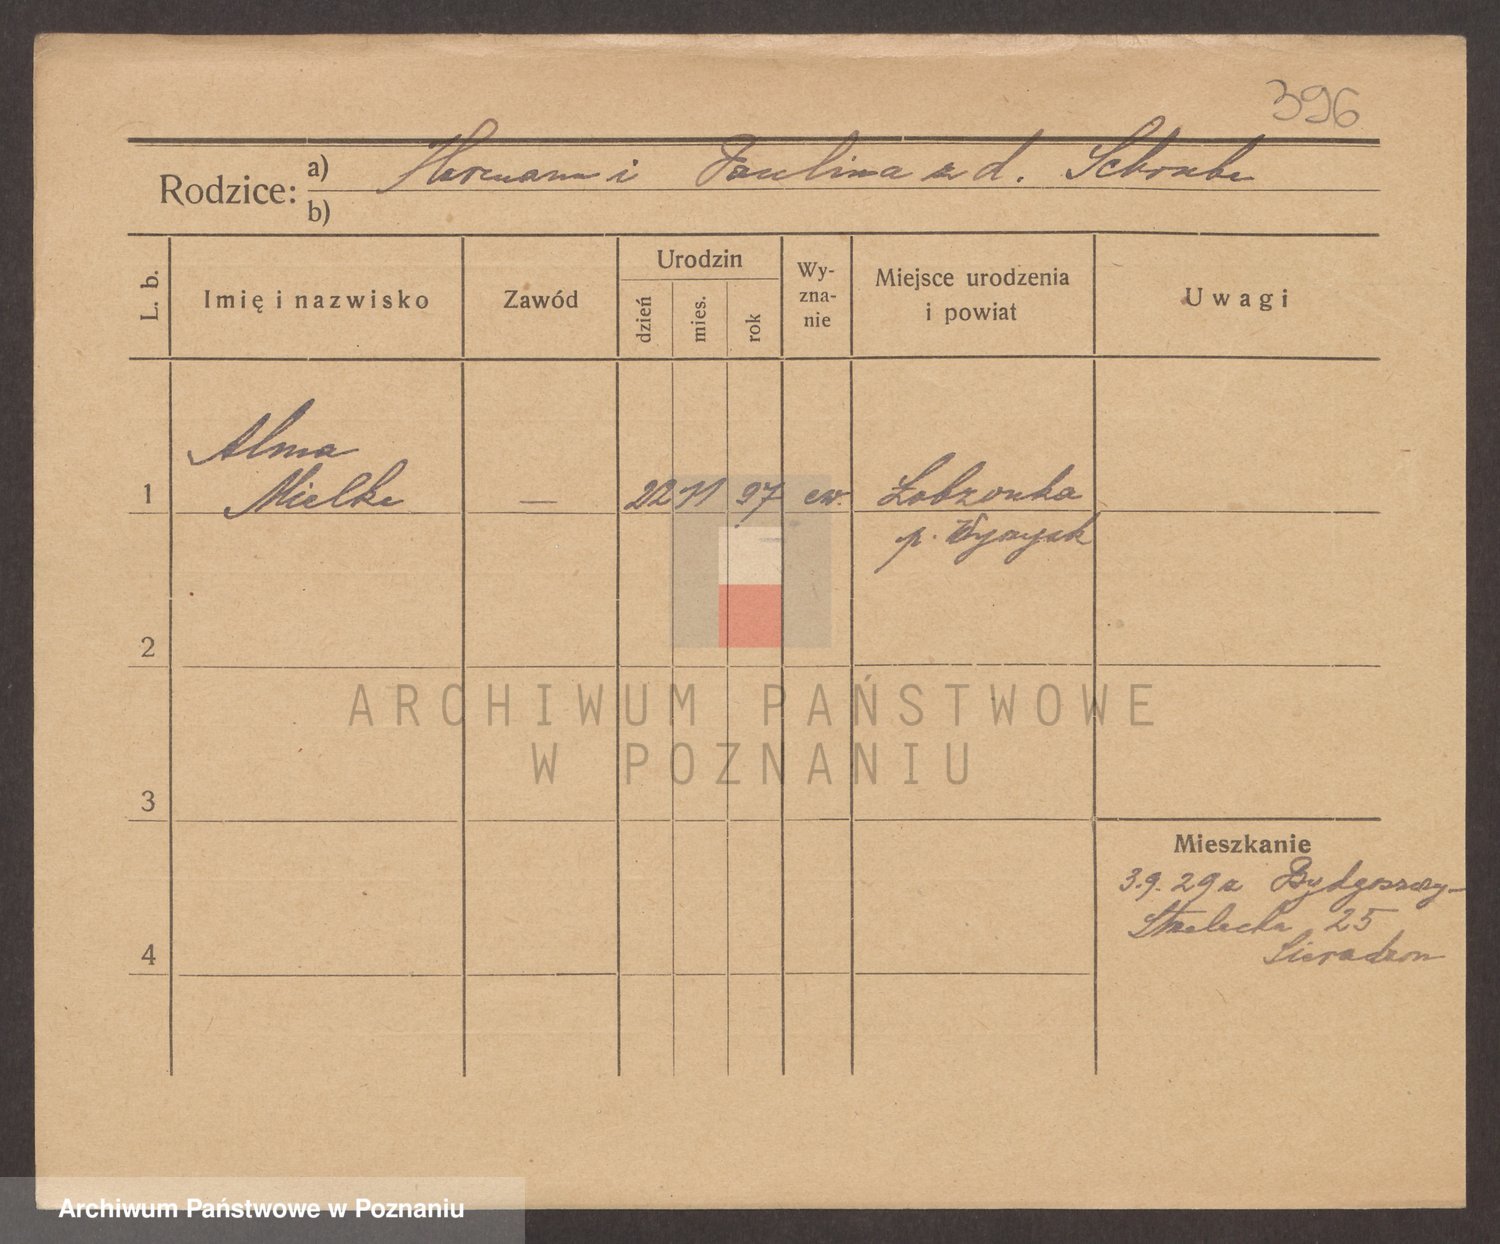 396
Rodzice: a) Hermann i Paulina z d.
b)
L. b. Imię i nazwisko Zawód Urodzin dzień mies. rok Wy-zna-nie Miejsce urodzenia i powiat Uwagi
Alma
1 Mielke — 22 11 97 ew. Łobzonka
p. Wyrzysk
2
ARCHIWUM PAŃSTWOWE
W POZNANIU
3
Mieszkanie
3.9.29 z Bydgoszczy-
Strzelecka 25
4
Archiwum Państwowe w Poznaniu